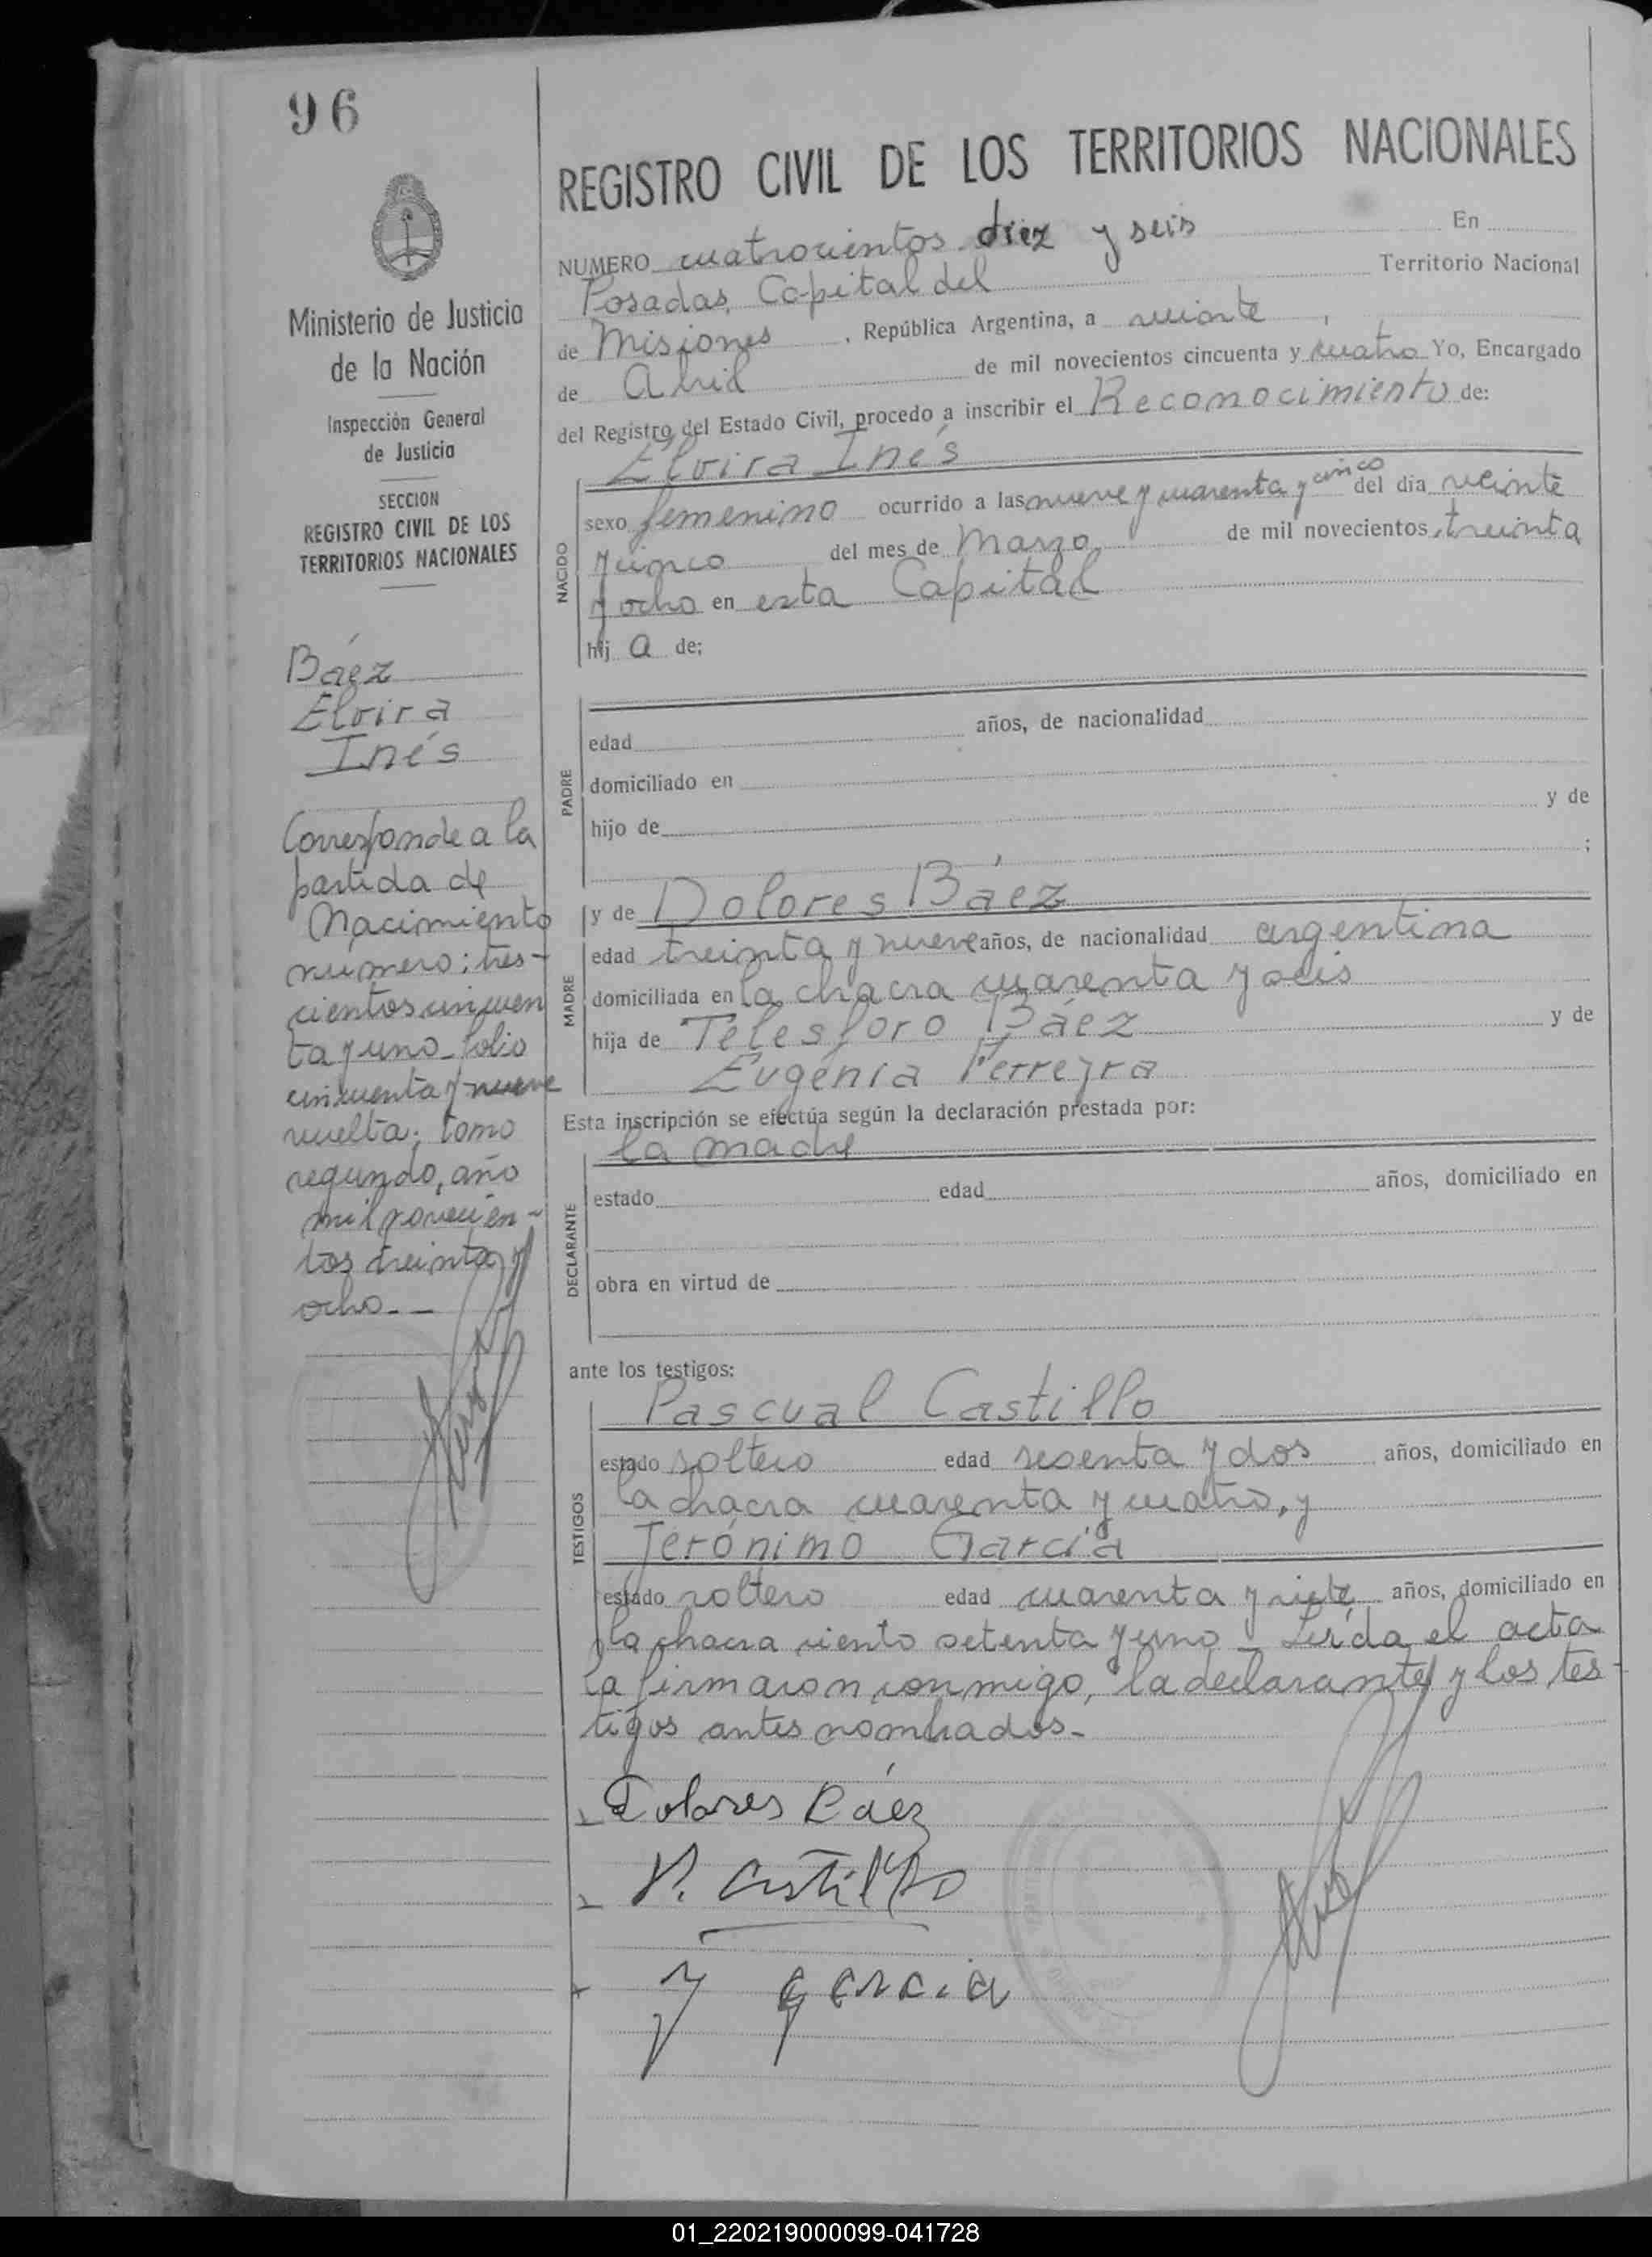 96
Ministerio de Justicia
de la Nación
Inspección General
de Justicia
SECCION
REGISTRO CIVIL DE LOS
TERRITORIOS NACIONALES
Báez
Elvira
Inés
Corresponde a la
partida de
Nacimiento
número: tres-
cientos cincuen
ta y uno - folio
cincuenta y nueve
vuelta; tomo
segundo, año
mil novecien-
tos treinta y
ocho.-
REGISTRO CIVIL DE LOS TERRITORIOS NACIONALES
NUMERO cuatrocientos diez y seis En
Posadas, Capital del Territorio Nacional
de Misiones, República Argentina, a veinte,
de Abril de mil novecientos cincuenta y cuatro Yo, Encargado
del Registro del Estado Civil, procedo a inscribir el Reconocimiento de:
Elvira Inés
NACIDO
sexo femenino ocurrido a las nueve y cuarenta y cinco del día veinte
y cinco del mes de Marzo, de mil novecientos treinta
y ocho en esta Capital
hij a de;
PADRE
edad años, de nacionalidad
domiciliado en
hijo de y de
;
MADRE
y de Dolores Báez
edad treinta y nueve años, de nacionalidad argentina
domiciliada en la chacra cuarenta y seis
hija de Telésforo Báez y de
Eugenia Ferreyra
Esta inscripción se efectúa según la declaración prestada por:
la madre
DECLARANTE
estado edad años, domiciliado en
obra en virtud de
ante los testigos:
Pascual Castillo
TESTIGOS
estado soltero edad sesenta y dos años, domiciliado en
la chacra cuarenta y cuatro, y
Jerónimo García
estado soltero edad cuarenta y siete años, domiciliado en
la chacra ciento setenta y uno - Leída el acta
la firmaron conmigo, la declarante y los tes-
tigos antes nombrados.-
Dolores Báez
P. Castillo
J Garcia
01_220219000099-041728